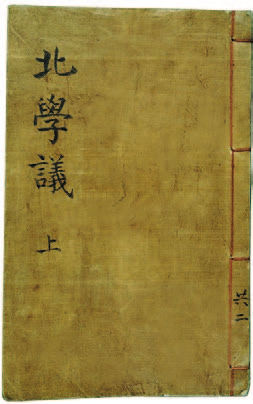 北學議 上
共二